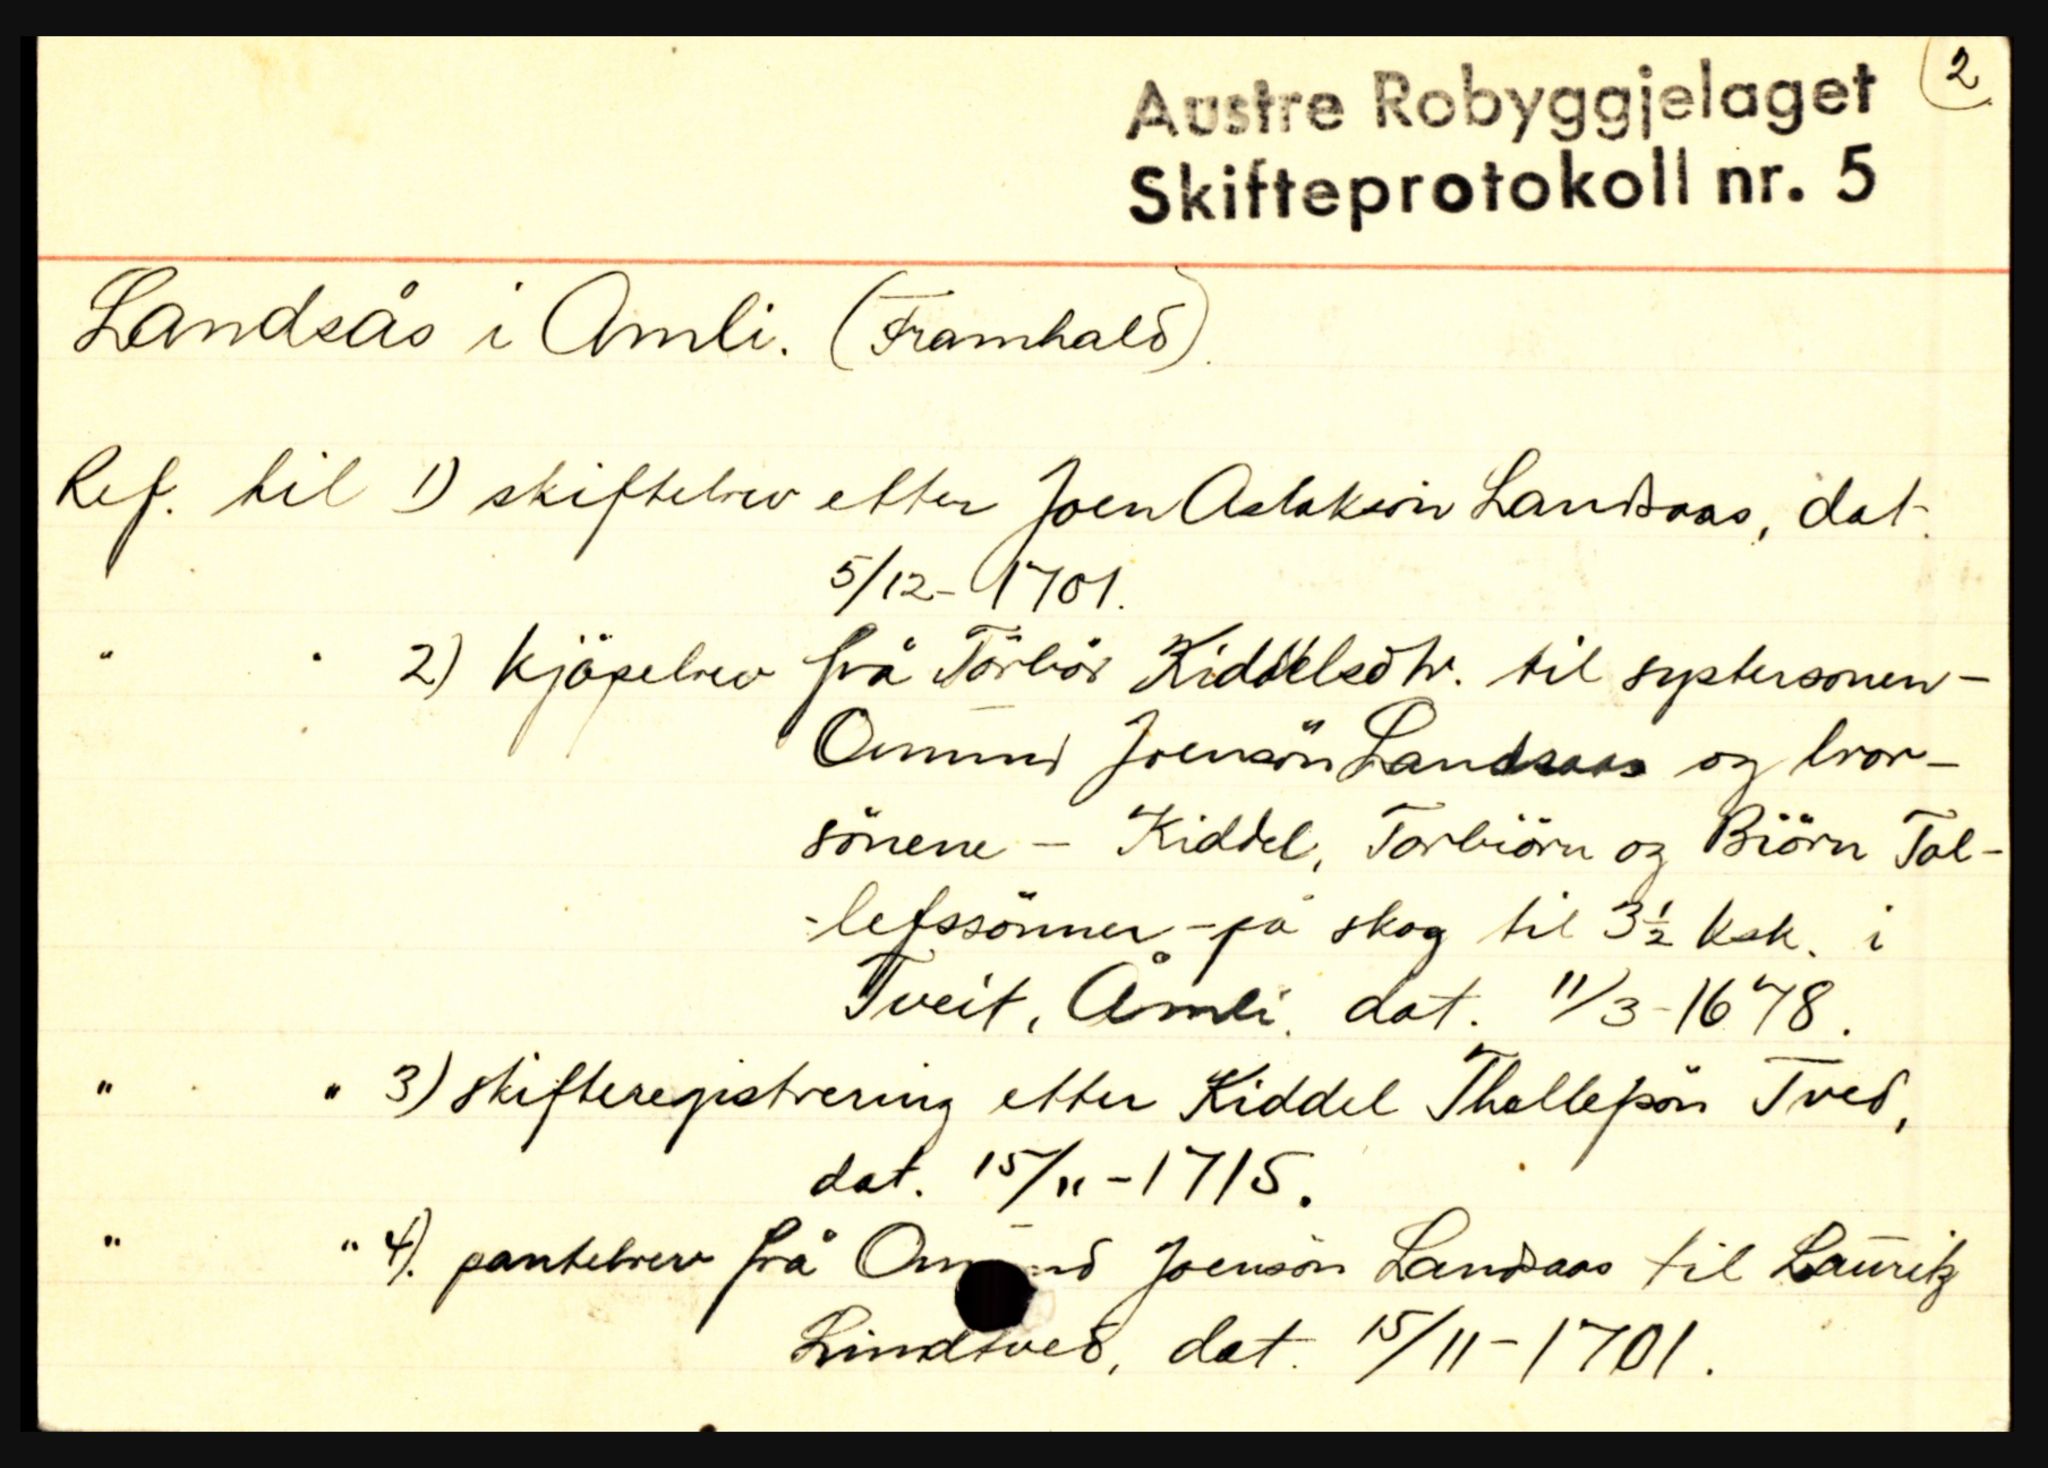 2
Austre Robyggjelaget
Skifteprotokoll nr. 5
Landsås i Åmli. (Framhald).
Ref. til 1) skiftebrev etter Joen Aslaksön Landsaas, dat.
5/12-1701.
" " 2) kjöpebrev frå Törbör Kiddelsdtr. til systersonen-
Omund Joensön Landsaas og bror-
sönene - Kiddel, Torbiörn og Biörn Tol-
-lefssönner - på skog til 3½ ksk. i
Tveit, Åmli, dat. 11/3-1678.
" " 3) skifteregistrering etter Kiddel Thollefsön Tved,
dat. 15/11-1715.
" " 4). pantebrev frå Omund Joensön Landsaas til Lauritz
Lindtved, dat. 15/11-1701.